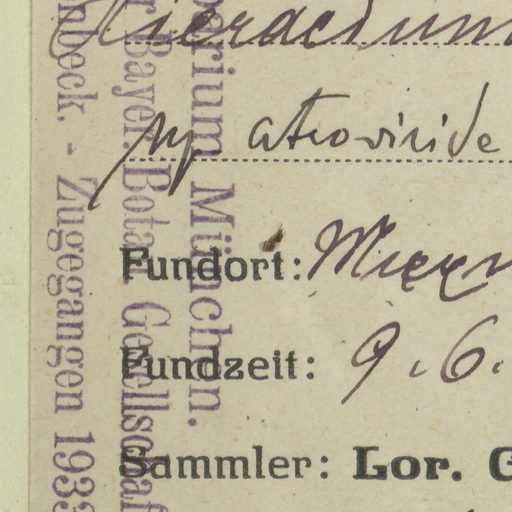 Hieracium
ssp atroviride
Fundort:
Fundzeit: 9.6.
Sammler: Lor. G
rium München.
Bayer. Bota. Gesellschaf
nbeck. - Zugegangen 193